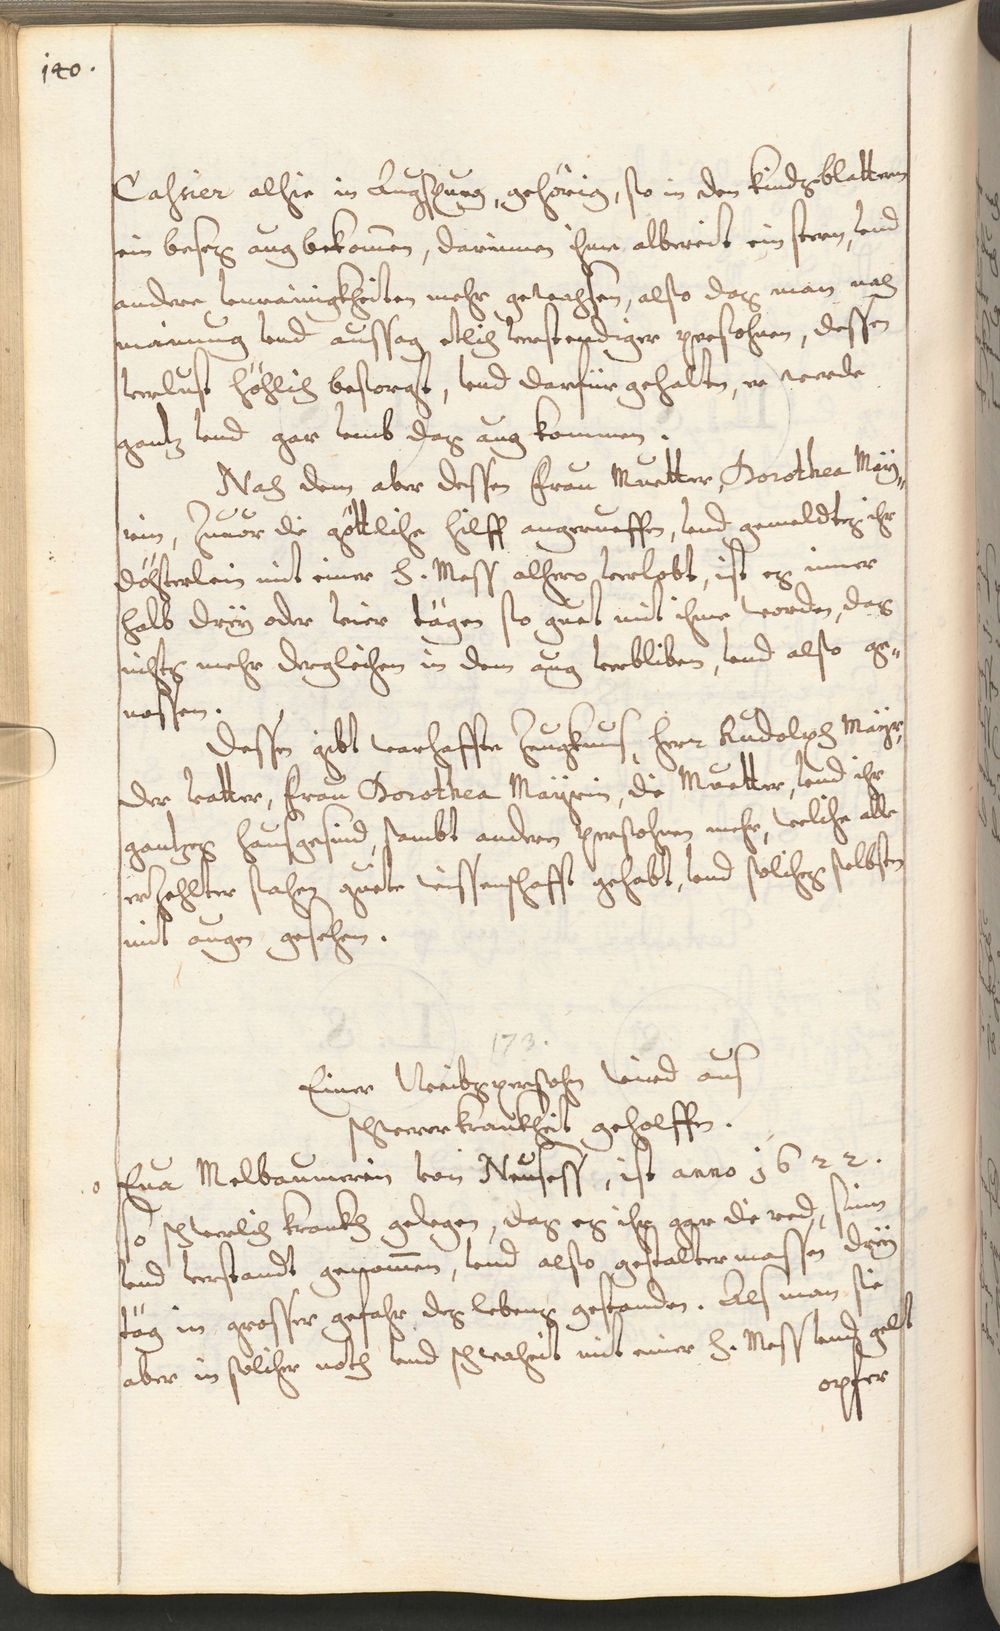 140.
Cassier alhie in Augspurg, gehörig, so in den kindsblattern
ein beses aug bekom̄en, darinnen ihme albereit ein stern, vnd
andere vnrainigkheiten mehr gewachsen, also das man nach
mainung vnd aussag etlich verstendiger persohnen, dessen
verlust höchlich besorgt, vnd darfür gehalten, er werde
gantz vnd gar vmb das aug kommen.
Nach dem aber dessen Frau Muetter, Dorothea Mäy„
rin, zuuor die göttliche hilff angerueffen, vnd gemeldtes ihr
döchterlein mit einer H. Mess alhero verlobt, ist es inner
halb drey oder vier tägen so guet mit ihme worden, das
nichts mehr dergleichen in dem aug verbliben, vnd also ge„
nossen.
Dessen gibt warhaffte Zeugknus, Herr Rudolph Mäyr,
der vatter, Frau Dorothea Mäyrin, die Muetter, vnd ihr
gantzes hausgesind, sambt anderen persohnen mehr, welche alle
erzehlter sachen guete wissenschafft gehabt, vnd solches selbsten
mit augen gesehen.
173.
Einer Weibspersohn wird aus
schwerer krankheit geholffen.
o Eua Melbaumerin von Neuses, ist anno 1622.
so schwerlich krankh gelegen, das es ihr gar die red, sinn
vnd verstandt genom̄en, vnd also gestalter massen drey
täg in grosser gefahr des lebens gestanden. Als man sie
aber in solcher noth vnd schwacheit mit einer H. Mess vnd gelt
opfer